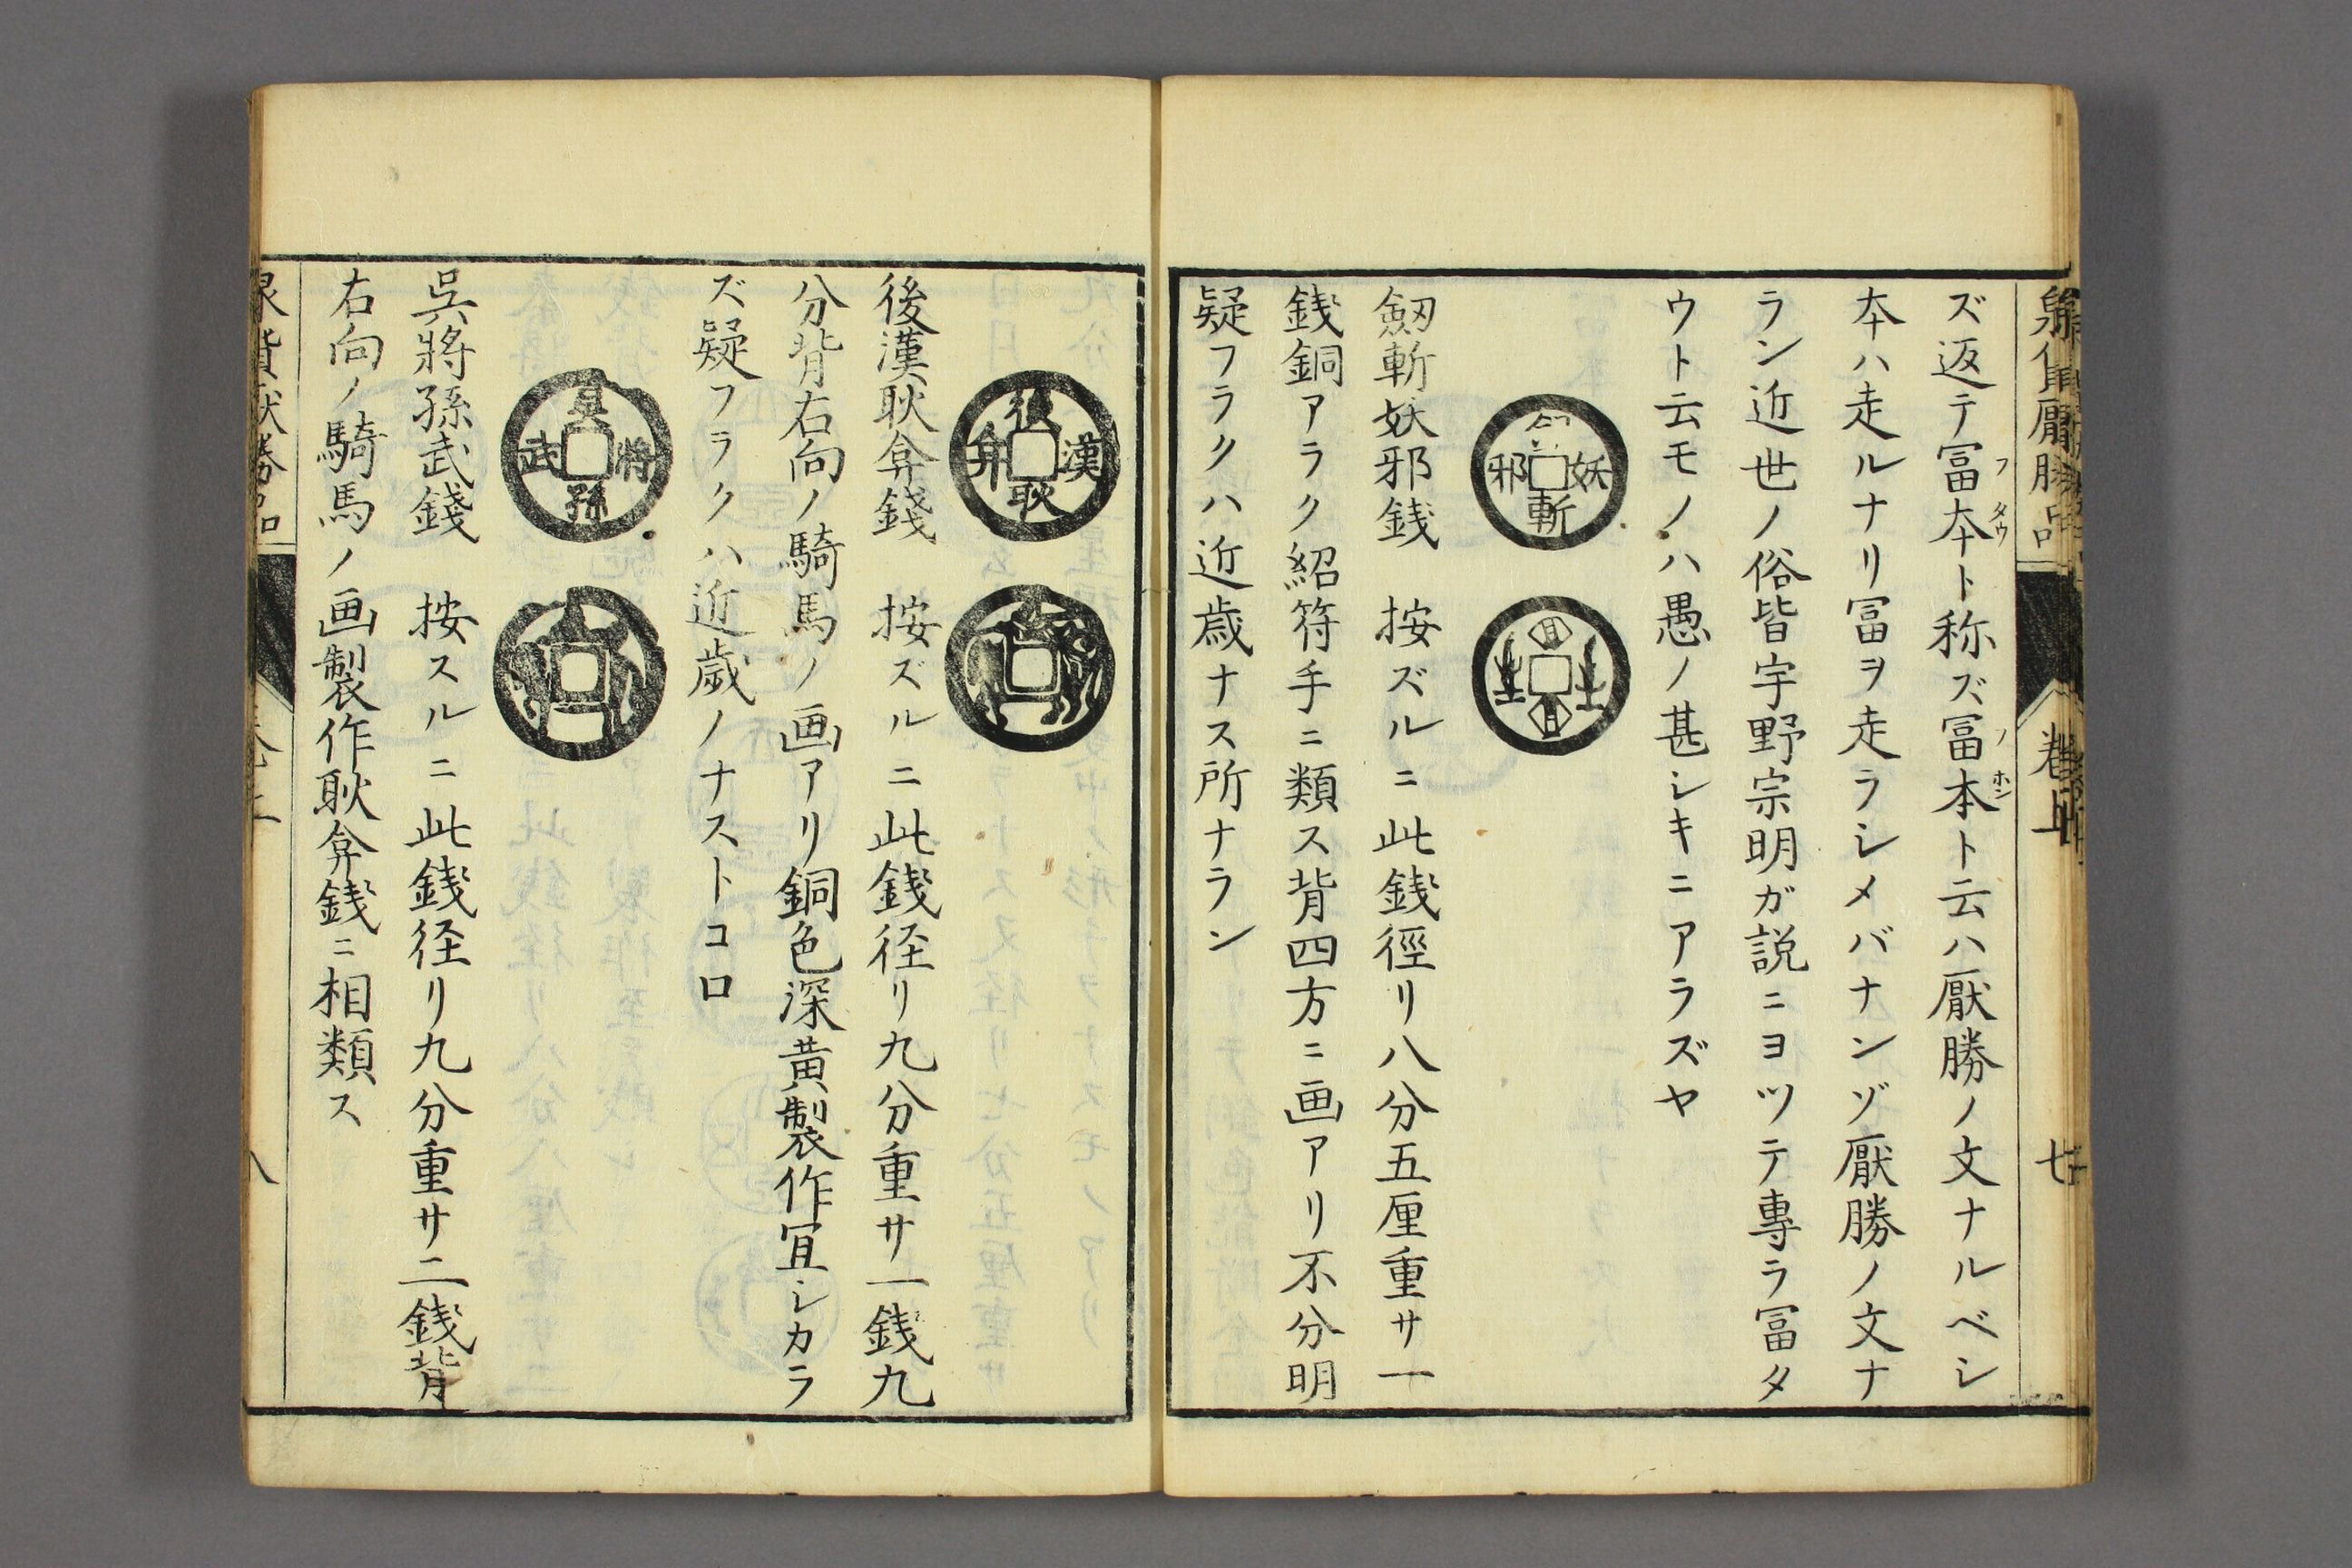 ズ返テ冨夲ト称ズ冨本ト云ハ厭勝ノ文ナルベシ
フタウ
ノホン
夲ハ走ルナリ冨ヲ走ラシメバナンゾ厭勝ノ文ナ
ラン近世ノ俗皆宇野宗明ガ説ニヨツテ專ラ冨タ
ウト云モノハ愚ノ甚シキニアラズヤ
妖斬邪
劔斬妖邪銭　按ズルニ此銭徑リ八分五厘重サ一
銭銅アラク紹符手ニ類ス背四方ニ画アリ不分明
疑フラクハ近歳ナス所ナラン
卷上
七
後漢耿弇
後漢耿弇錢　按ズルニ此銭径リ九分重サ一銭九
分背右向ノ騎馬ノ画アリ銅色深黄製作冝シカラ
ズ疑フラクハ近歳ノナストコロ
吴將孫武
吳將孫武錢　按スルニ此銭径リ九分重サ二銭背
右向ノ騎馬ノ画製作耿弇銭ニ相類ス
八